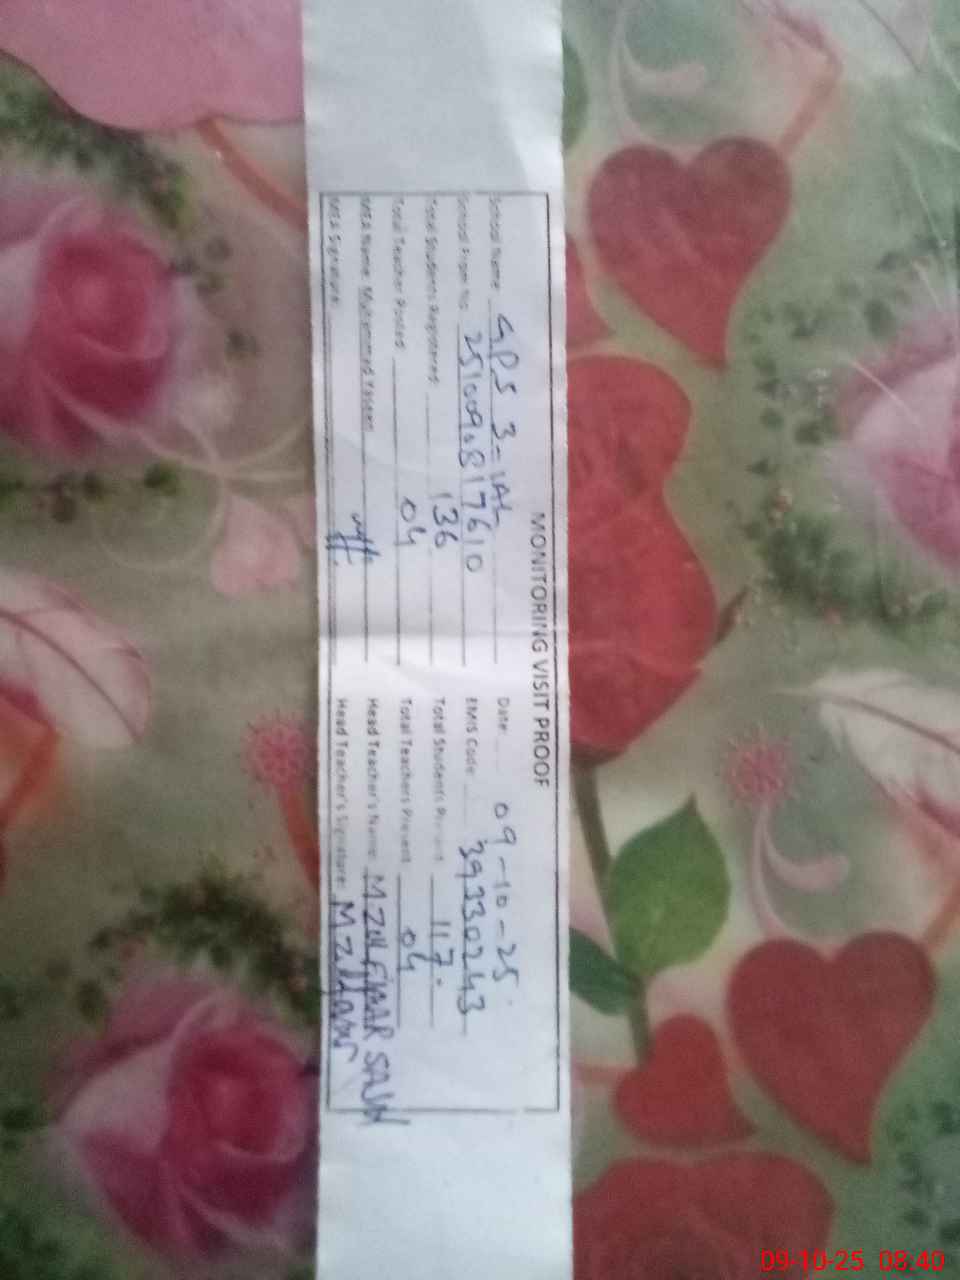 MONITORING VISIT PROOF
School Name: GPS 3-1AL Date: 09-10-25
School Prem No: 251009081 7610 EMIS Code: 39330243
Total Students Registered: 136 Total Students Present: 117
Total Teacher Posted: 04 Total Teachers Present: 04
MEA Name: Muhammad Yaseen Head Teacher's Name: M Zulfiqar
MEA Signature: Head Teacher's Signature: M Zulfiqar
09-10-25 08:40